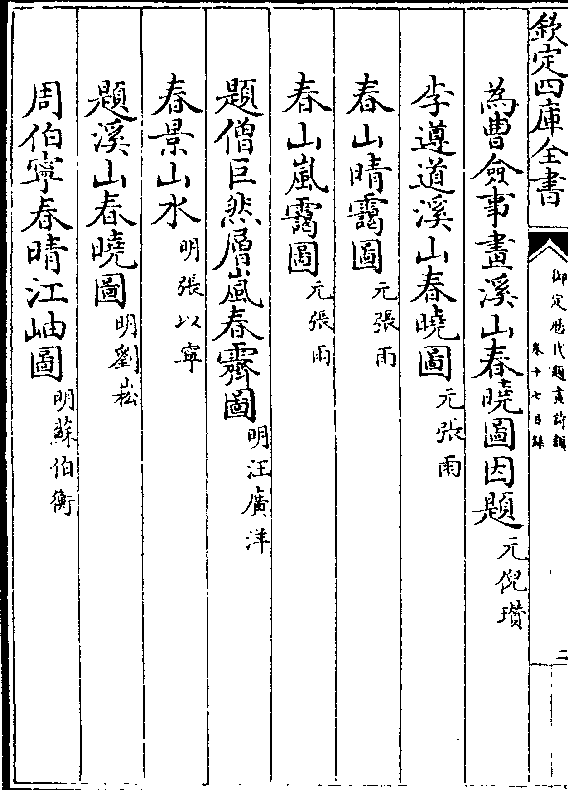 欽定四庫全書
御定歷代題畫詩類
卷十七目錄
二
為曹僉事畫溪山春曉圖因題 元倪瓚
李遵道溪山春曉圖 元張雨
春山晴靄圖 元張雨
春山嵐靄圖 元張雨
題僧巨然層嵐春霽圖 明汪廣洋
春景山水 明張以寧
題溪山春曉圖 明劉崧
周伯寧春晴江岫圖 明蘇伯衡